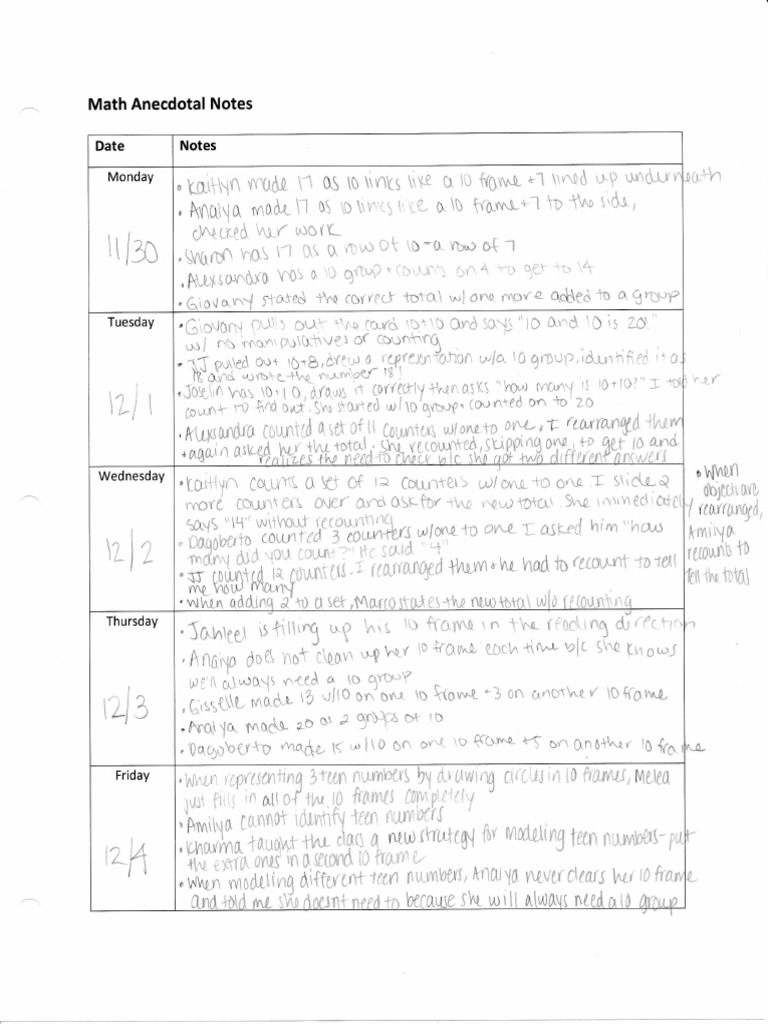 Math Anecdotal Notes
Date Notes
Monday
11/30
• Kaitlyn made 17 as 10 links like a 10 frame + 7 lined up underneath
• Anaiya made 17 as 10 links like a 10 frame + 7 to the side,
checked her work
• Sharon has 17 as a row of 10 + a row of 7
• Alexsandra has a 10 group + counts on 4 to get to 14
• Giovany stated the correct total w/one more added to a group
Tuesday
12/1
• Giovany pulls out the card 10+10 and says "10 and 10 is 20!"
w/ no manipulatives or counting
• JJ pulled out 10+8, drew a representation w/a 10 group, identified it as
18 and wrote the number 18!
• Joselin has 10+10, draws it correctly then asks "how many is 10+10?" I told her
count to find out. She started w/10 group + counted on to 20
• Alexsandra counted a set of 11 counters w/one to one, I rearranged them
+ again asked her the total. She recounted, skipping one, to get 10 and
realizes the need to check b/c she got two different answers
Wednesday
12/2
• Kaitlyn counts a set of 12 counters w/one to one. I slide 2
more counters over and ask for the new total. She immediately
says "14" without recounting
• Dagoberto counted 3 counters w/one to one I asked him "how
many did you count?" He said "4"
• JJ counted 12 counters. I rearranged them + he had to recount to tell
me how many
• When adding 2 to a set, Marco states the new total w/o recounting
• When
objects are
rearranged,
Amilya
recounts to
tell the total
Thursday
12/3
• Jahleel is filling up his 10 frame in the reading direction
• Anaiya does not clean up her 10 frame each time b/c she knows
we'll always need a 10 group
• Gisselle made 13 w/10 on one 10 frame + 3 on another 10 frame
• Anaiya made 20 as 2 groups of 10
• Dagoberto made 15 w/10 on one 10 frame + 5 on another 10 frame
Friday
12/4
• When representing 3 teen numbers by drawing circles in 10 frames, Melea
just fills in all of the 10 frames completely
• Amilya cannot identify teen numbers
• Kharma taught the class a new strategy for modeling teen numbers- put
the extra ones in a second 10 frame
• When modeling different teen numbers, Anaiya never clears her 10 frame
and told me she doesnt need to because she will always need a 10 group